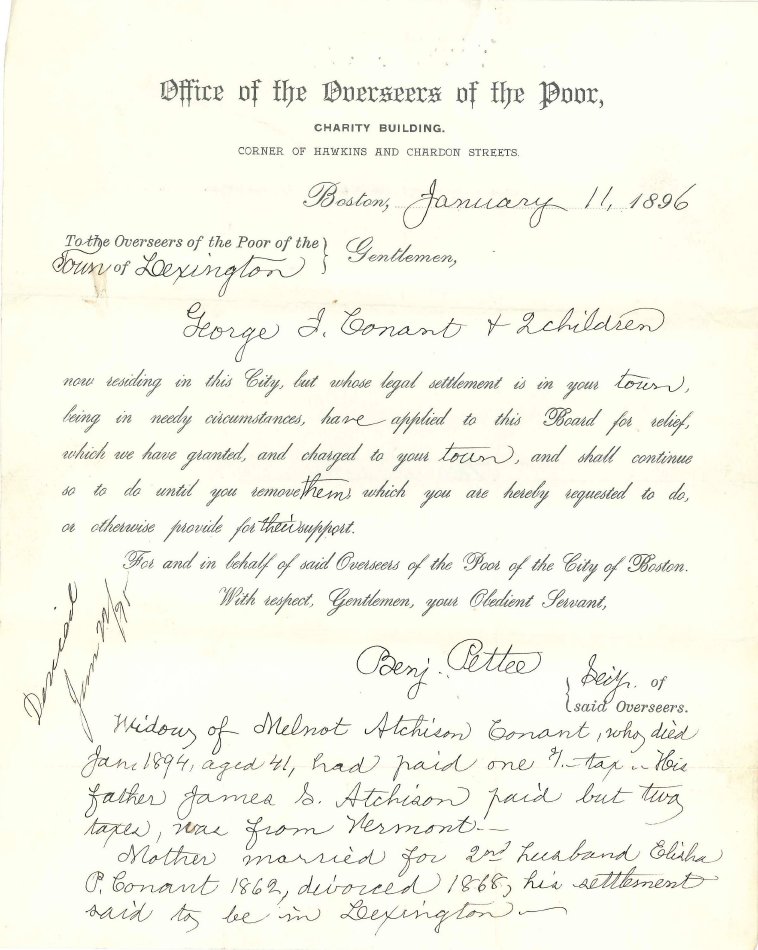 Office of the Overseers of the Poor,
CHARITY BUILDING.
CORNER OF HAWKINS AND CHARDON STREETS.
Boston, January 11, 1896
To the Overseers of the Poor of the
Town of Lexington } Gentlemen,
George I. Conant & 2 children
now residing in this City, but whose legal settlement is in your town,
being in needy circumstances, have applied to this Board for relief,
which we have granted, and charged to your town, and shall continue
so to do until you remove them, which you are hereby requested to do,
or otherwise provide for their support.
For and in behalf of said Overseers of the Poor of the City of Boston.
With respect, Gentlemen, your Obedient Servant,
Denied
Jan
Benj. Pettee { of
said Overseers.
Widow of Melnot Atchison Conant, who died
Jan. 1894, aged 41, had paid one tax – His
father James S. Atchison paid but two
taxes, was from Vermont –
Mother married for 2nd husband Elisha
P. Conant 1862, divorced 1868, his settlement
said to be in Lexington –